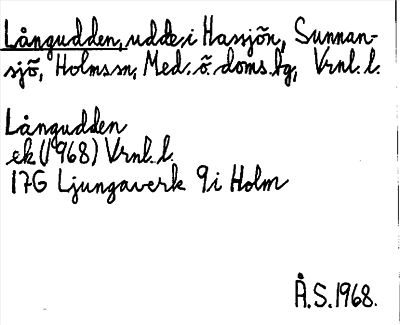 Långudden, udde i Hassjön, Sunnan-
sjö, Holms sn, Med. ö. doms. hg, Vrnl. l.
Långudden
ek (1968) Vrnl. l.
17G Ljungaverk 9i Holm
Å.S. 1968.